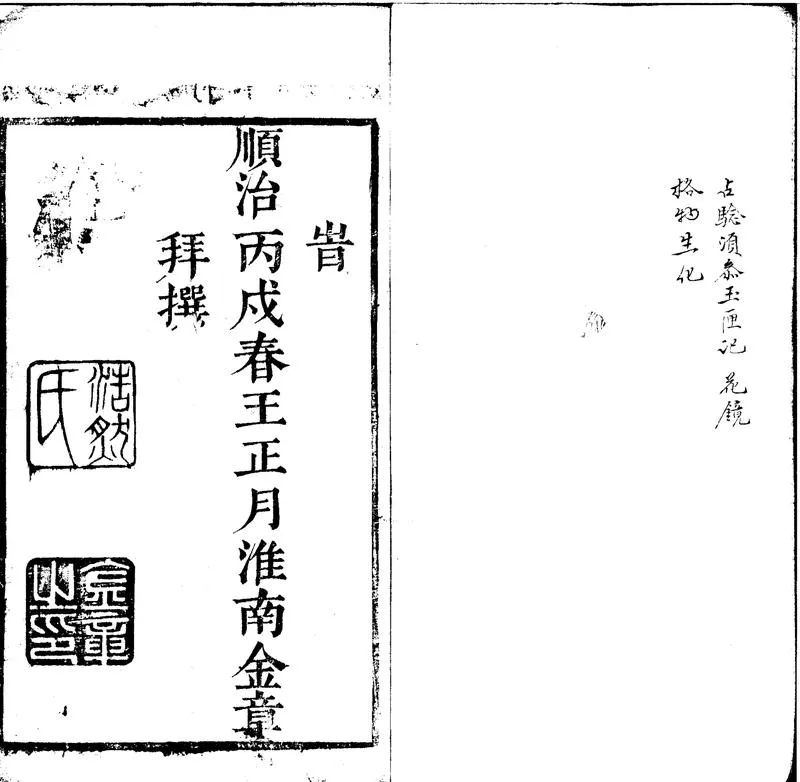 占驗須叅玉匣记 花鏡
格物生化
旹
順治丙戌春王正月淮南金章
拜撰
浩然氏
金章之印